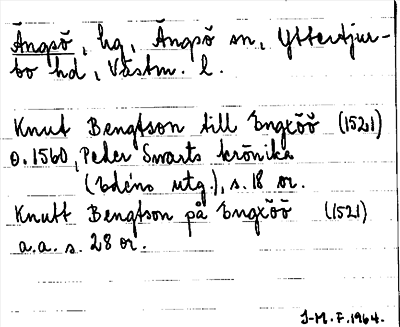 Ängsö, hg, Ängsö sn, Yttertjur-
bo hd, Västm. l.
Knut Bengtson till Engxöö (1521)
o.1560, Peder Swarts krönika
(Edéns utg.), s. 18 or.
Knutt Bengtson på Engxöö (1521)
a.a. s. 28 or.
I-M. F. 1964.